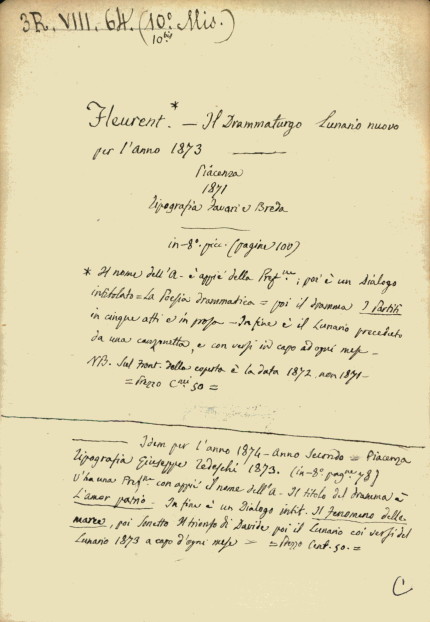 3R. VIII. 64. (10.º Mis.)
10bis
Fleurent.* — Il Drammaturgo Lunario nuovo
per l'anno 1873 ——
Piacenza
1871
Tipografia Favari e Breda
in-8º. picc. (pagine 100)
* Il nome dell'A- è appiè della Prefne.; poi è un Dialogo
intitolato = La Poesia drammatica = poi il dramma I Partiti
in cinque atti e in prosa — In fine è il Lunario preceduto
da una canzonetta, e con versi in capo ad ogni mese —
NB. Sul Front. della coperta è la data 1872. non 1871 —
= Prezzo Cmi 50 =
—— Idem per l'anno 1874 — Anno Secondo = Piacenza
Tipografia Giuseppe Tedeschi 1873. (in-8º pagne 78)
V'ha una Prefne con appiè il nome dell'A - Il titolo del dramma è
L'amor patrio. In fine è un Dialogo intit. Il Fenomeno delle
marea, poi Sonetto Il trionfo di Davide poi il Lunario coi versi del
Lunario 1873 a capo d'ogni mese = = Prezzo Cent. 50. =